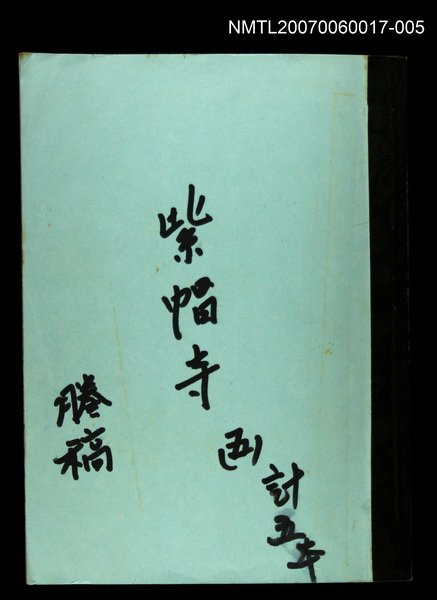 NMTL20070060017-005
紫帽寺
(五)
計五本
謄稿